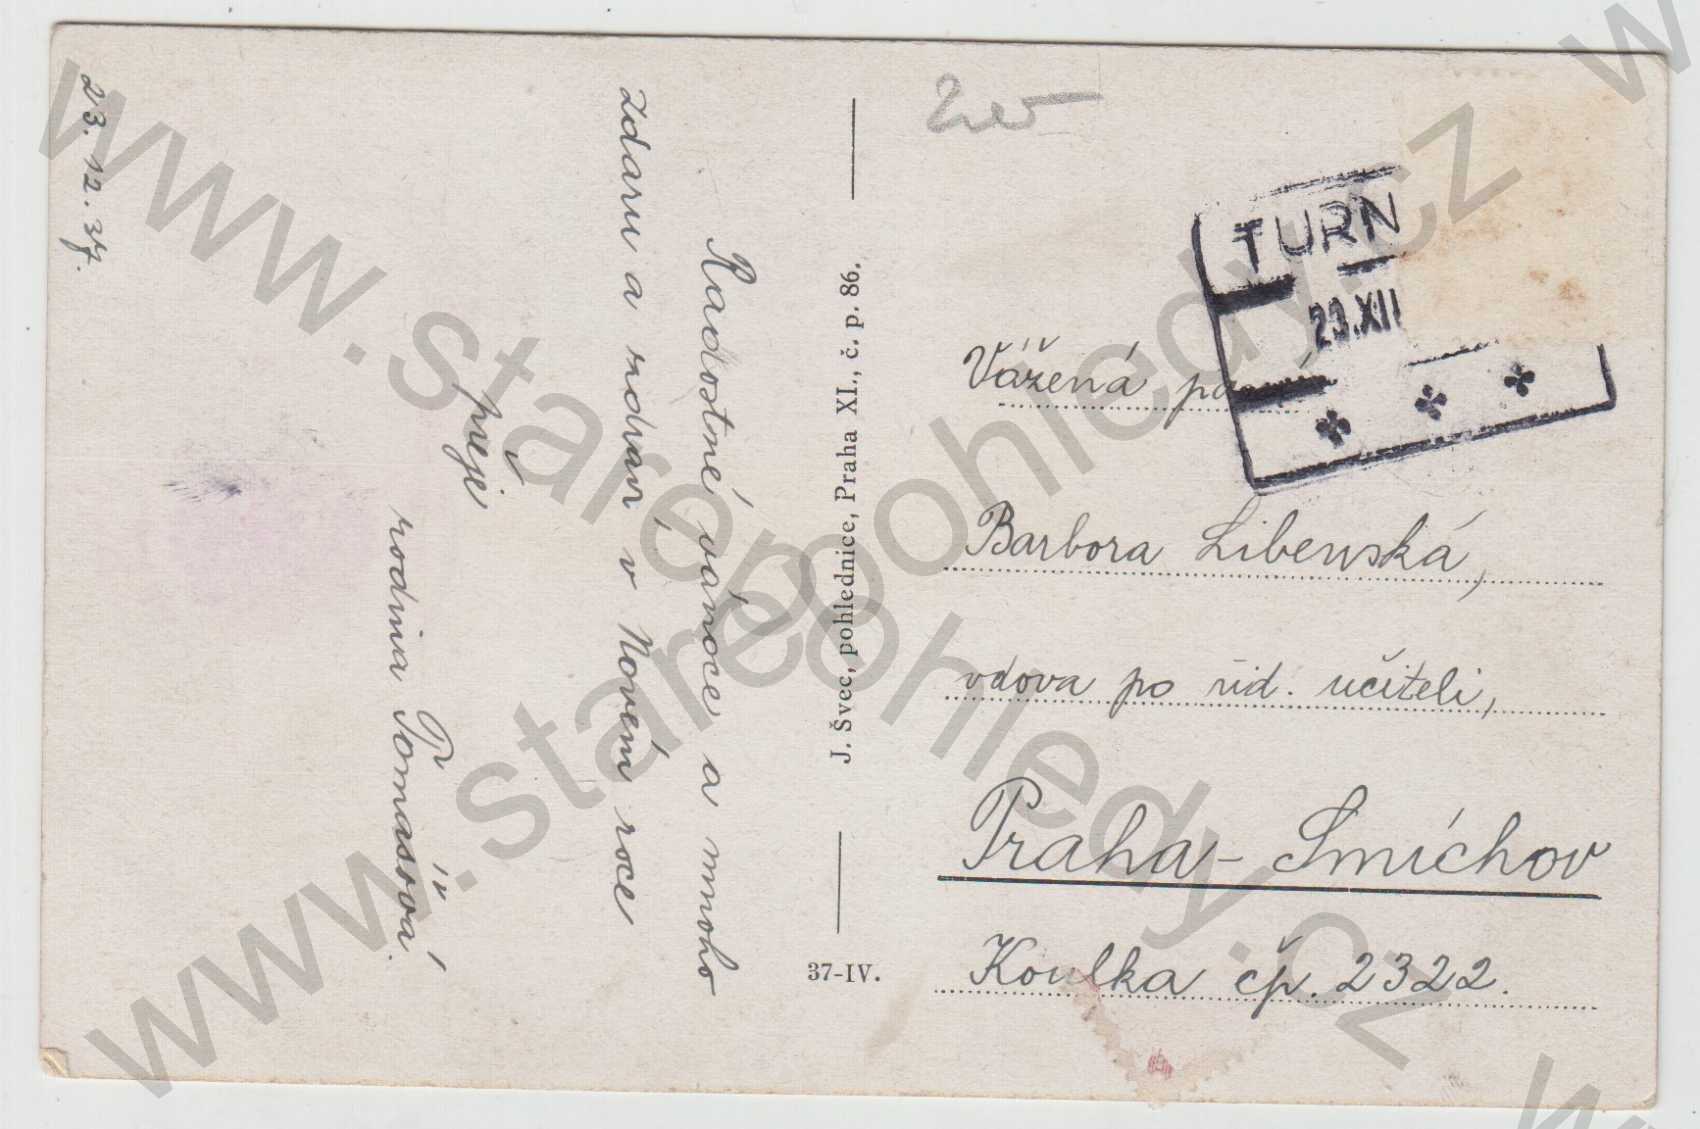 23. 12. 37.
Radostné vánoce a mnoho
zdaru a zdraví v Novém roce
přeje
rodina Tomášová.
J. Švec, pohlednice, Praha XI., č. p. 86.
37-IV.
TURN
23.XII
Vážená paní
Barbora Libenská,
vdova po říd. učiteli,
Praha - Smíchov
Koulka čp. 2322.
www.starepohledy.cz
www.starepohledy.cz